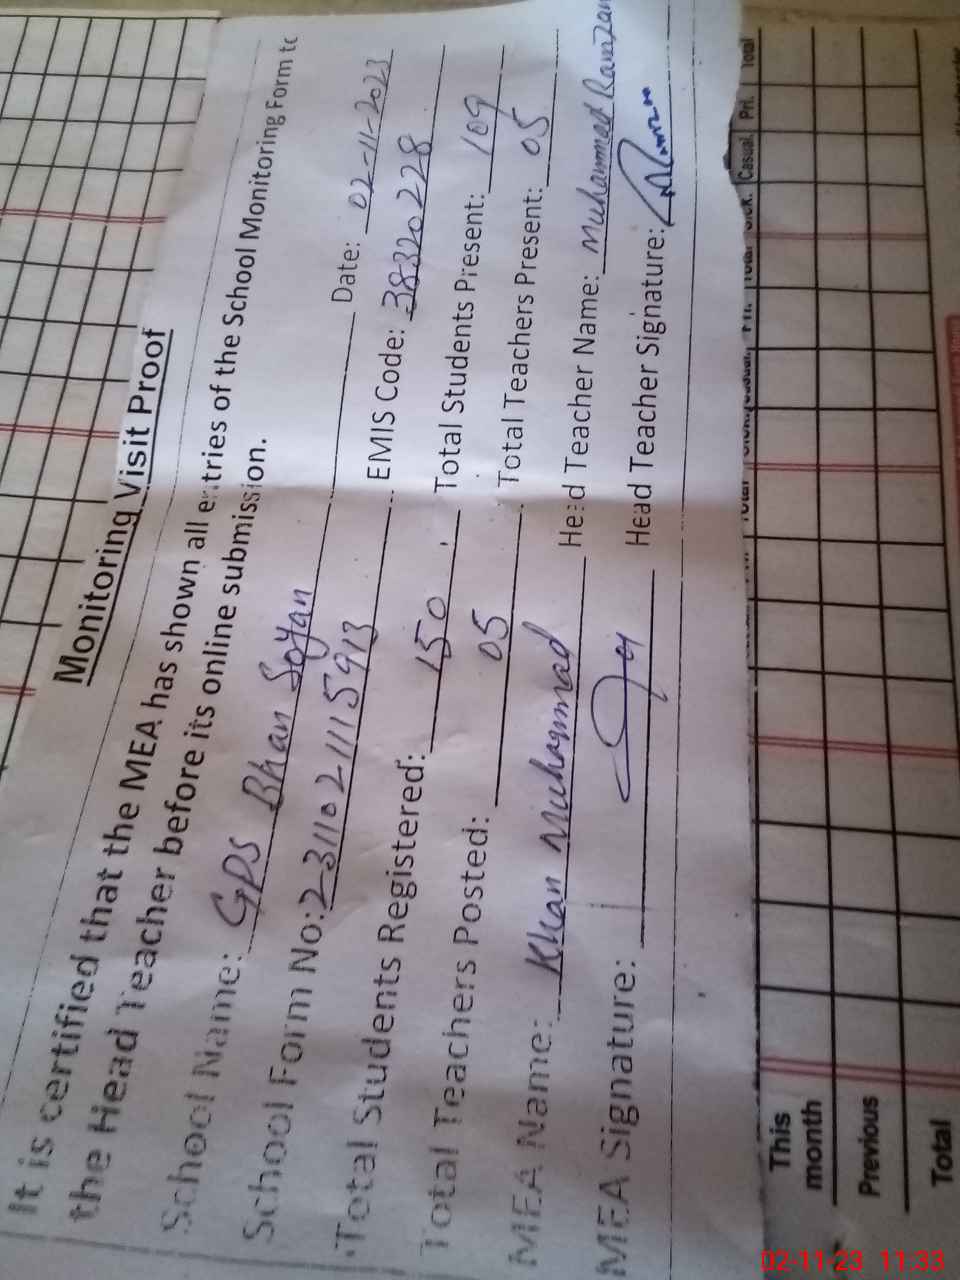 Monitoring Visit Proof
It is certified that the MEA has shown all entries of the School Monitoring Form to
the Head Teacher before its online submission.
School Name: GPS Bhan Soyan Date: 02-11-2023
School Form No: 2311021115913 EMIS Code: 38320228
Total Students Registered: 150 Total Students Present: 109
Total Teachers Posted: 05 Total Teachers Present: 05
MEA Name: Khan Muhammad Head Teacher Name: Muhammad Ramzan
MEA Signature: Head Teacher Signature:
Casual Pri. Total
This month
Previous
Total
02-11-23 11:33